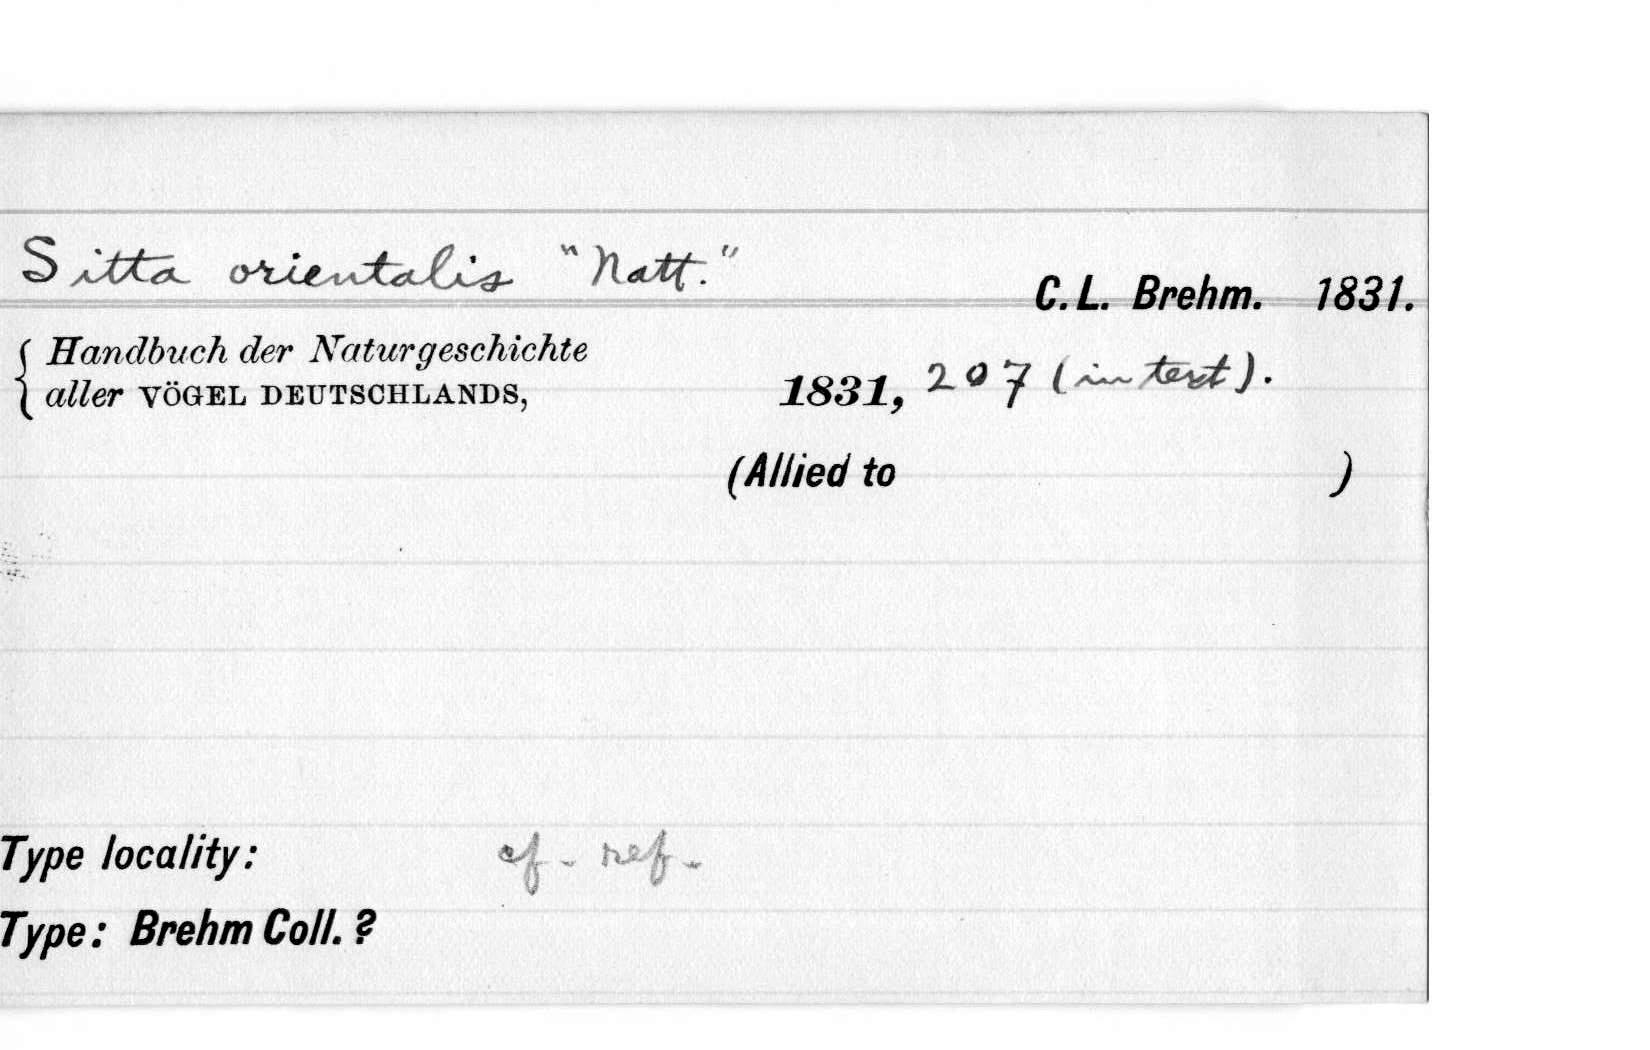 Sitta orientalis "Natt."
C.L. Brehm. 1831.
Handbuch der Naturgeschichte
aller VÖGEL DEUTSCHLANDS,
1831, 207 (in text).
(Allied to )
Type locality: cf. ref.
Type: Brehm Coll. ?